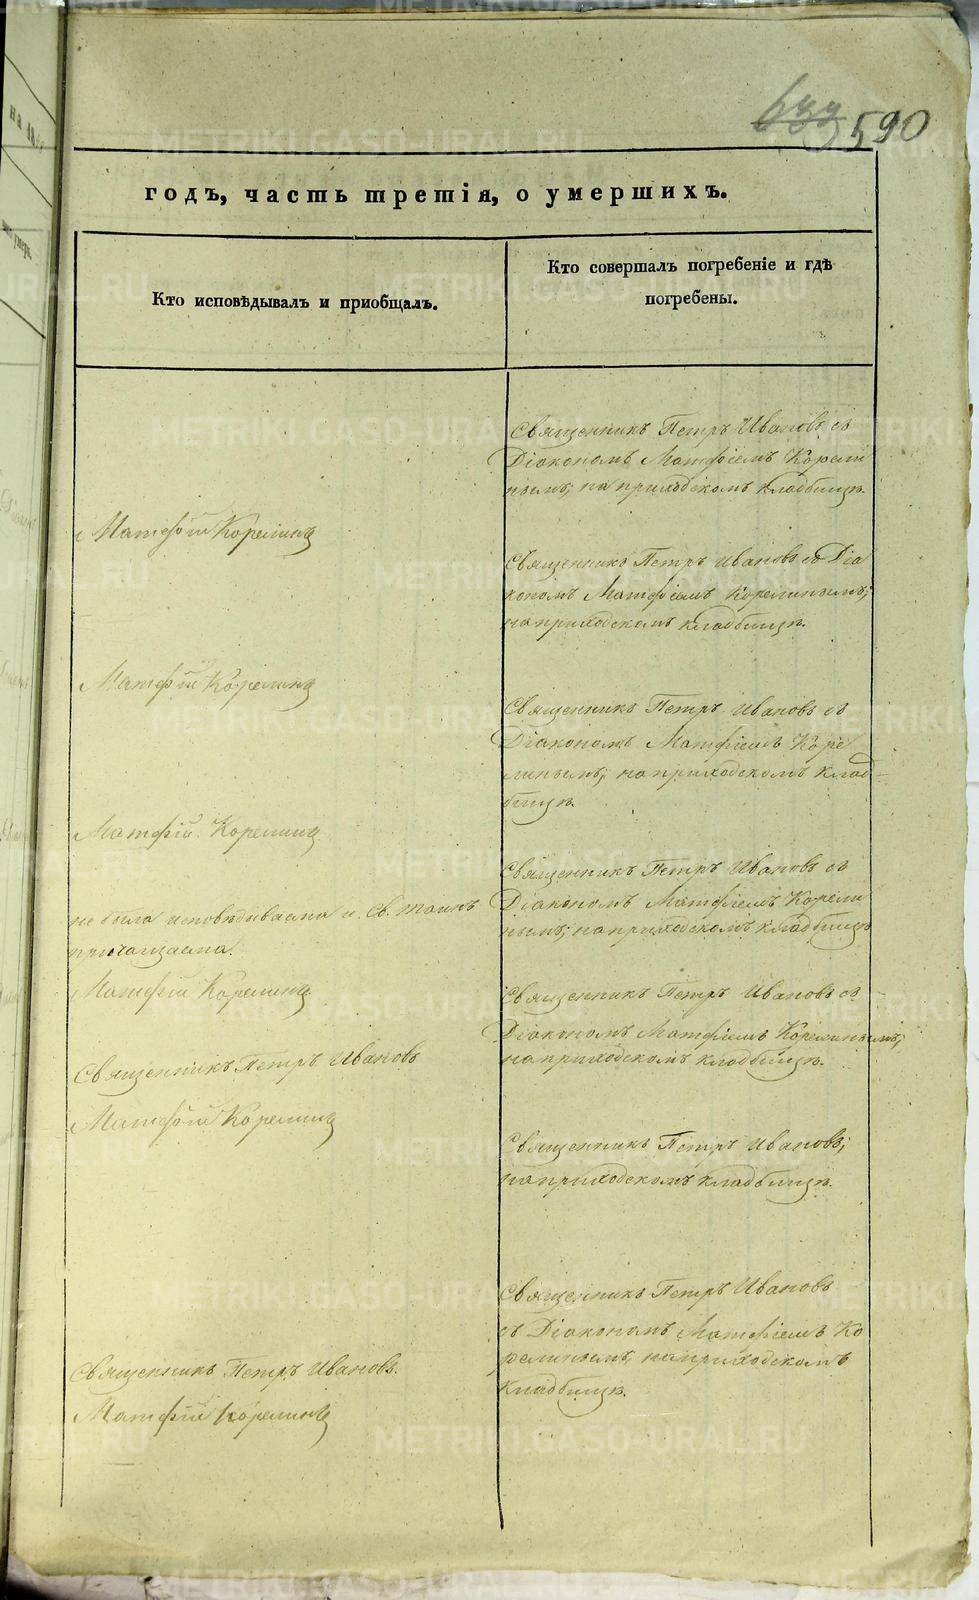 590
годъ, часть третія, о умершихъ.
Кто исповѣдывалъ и приобщалъ.
Кто совершалъ погребеніе и гдѣ
погребены.
Священникъ Петръ Ивановъ съ
Діакономъ Матфіемъ Корели
нымъ, на приходскомъ кладбищѣ.
Матфій Корелинъ
Священникъ Петръ Ивановъ съ Діа
кономъ Матфіемъ Корелинымъ;
на приходскомъ кладбищѣ.
Матфій Корелинъ
Священникъ Петръ Ивановъ съ
Діакономъ Матфіемъ Коре
линымъ; на приходскомъ клад-
бищѣ.
Матфій Корелинъ
Священникъ Петръ Ивановъ съ
Діакономъ Матфіемъ Корели
нымъ; на приходскомъ кладбищѣ
не была исповѣдываема и св. таинъ
причащаема.
Матфій Корелинъ
Священникъ Петръ Ивановъ съ
Діакономъ Матфіемъ Корелинымъ;
на приходскомъ кладбищѣ.
Священникъ Петръ Ивановъ
Матфій Корелинъ
Священникъ Петръ Ивановъ;
на приходскомъ кладбищѣ.
Священникъ Петръ Ивановъ
съ Діакономъ Матфіемъ Ко
релинымъ, на приходскомъ
кладбищѣ.
Священникъ Петръ Ивановъ.
Матфій Корелинъ
METRIKI.GASO-URAL.RU